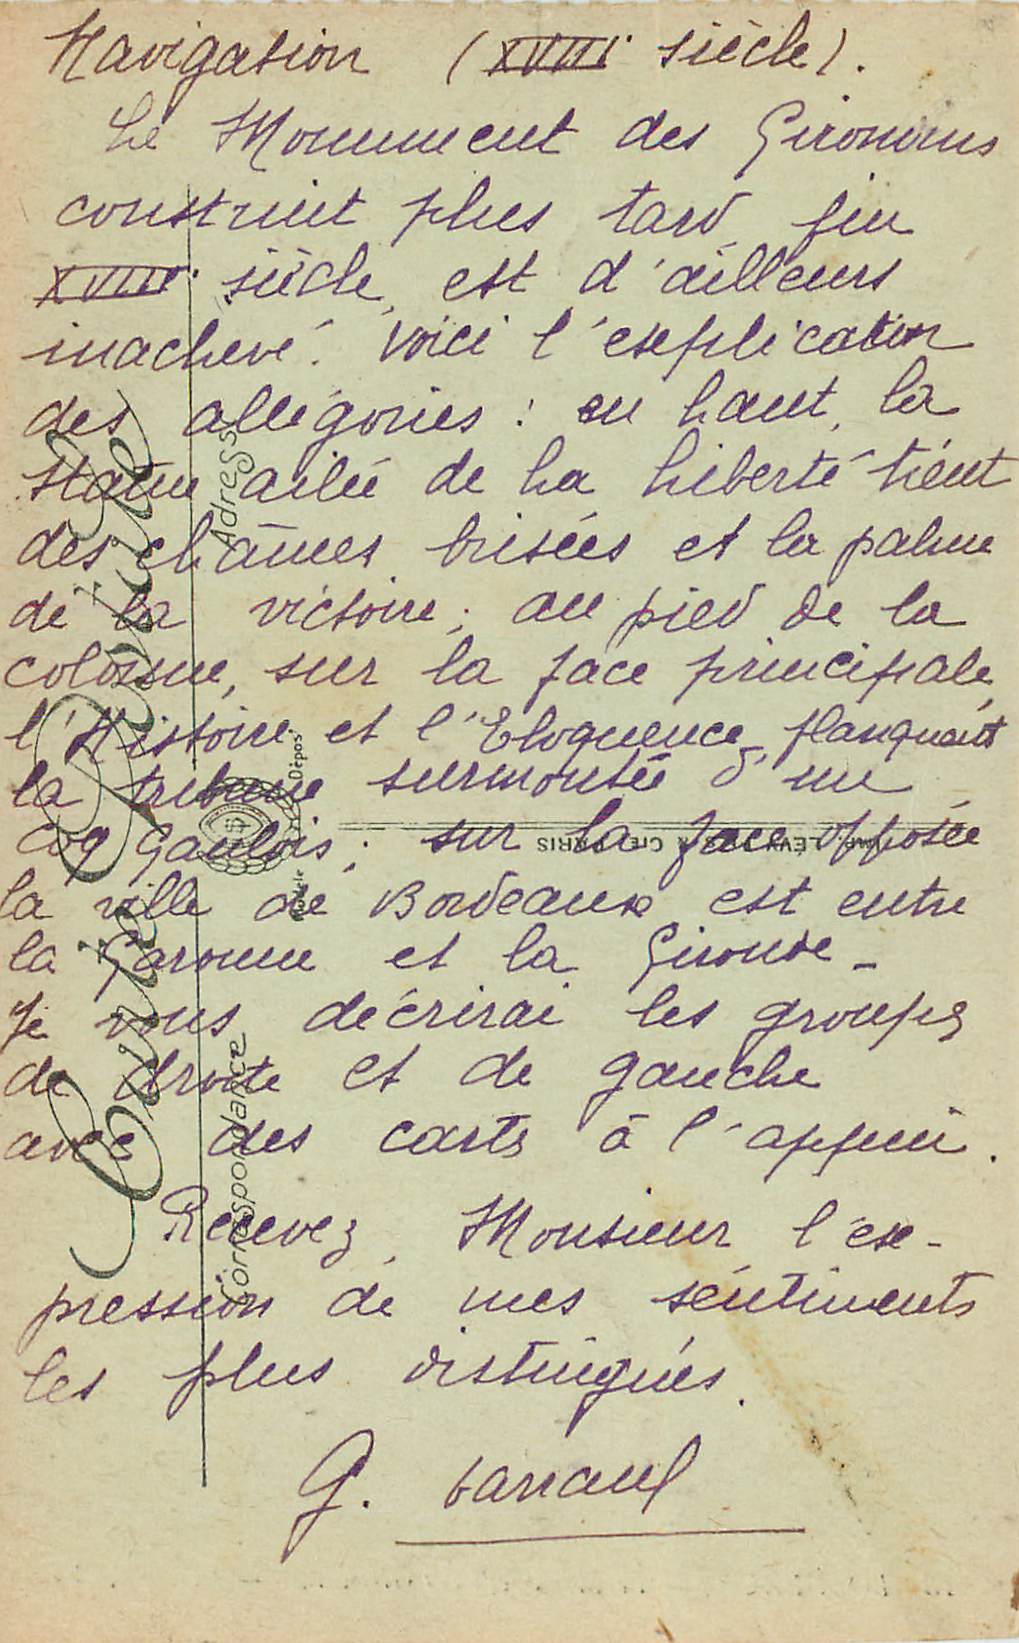 Navigation (XVIIIe siècle).
Le Monument des Girondins
construit plus tard fin
XVIIIe siècle, est d'ailleurs
inachevé. Voici l'explication
des allégories : en haut, la
statue ailée de la Liberté tient
des chaînes brisées et la palme
de la victoire ; au pied de la
colonne, sur la face principale,
l'Histoire et l'Eloquence flanquant
la tribune surmontée d'un
Coq Gaulois ; sur la face opposée
la ville de Bordeaux est entre
la Garonne et la Gironde_
Je vous décrirai les groupes
de droite et de gauche
avec des cartes à l'appui.
Recevez, Monsieur l'ex-
pression de mes sentiments
les plus distingués.
G.
Carte Postale
Correspondance
Adresse
Modèle Déposé
LÉVY FILS & CIE PARIS